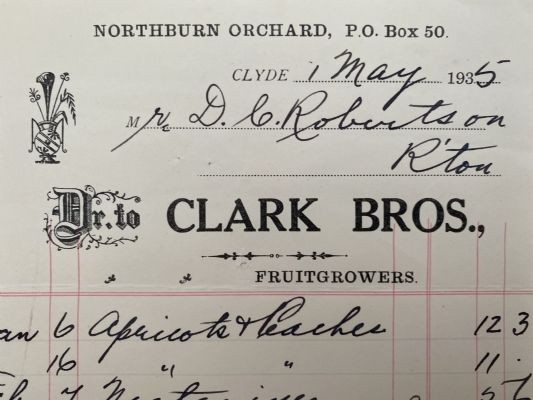 NORTHBURN ORCHARD, P.O. Box 50.
CLYDE 1 May 1935
Mr. D. C. Robertson
R'ton
Dr. to CLARK BROS.,
FRUITGROWERS.
an 6 Apricots & Peaches 12 3
16 " " 11 .
7 Nectarines